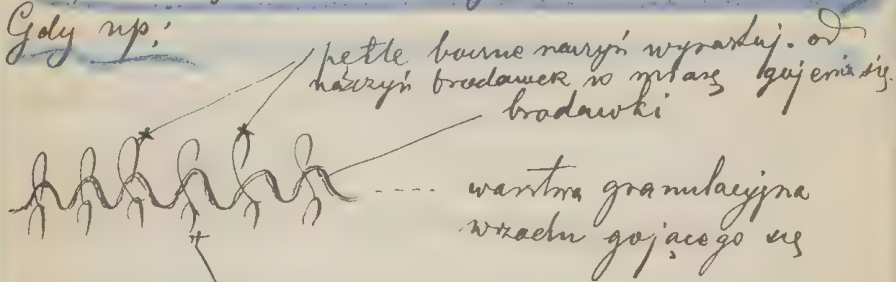 Gdy np:
pętle boczne naczyń wyrastaj. od
naczyń brodawek w miarę gojenia się.
brodawki
warstwa granulacyjna
wrzodu gojącego się